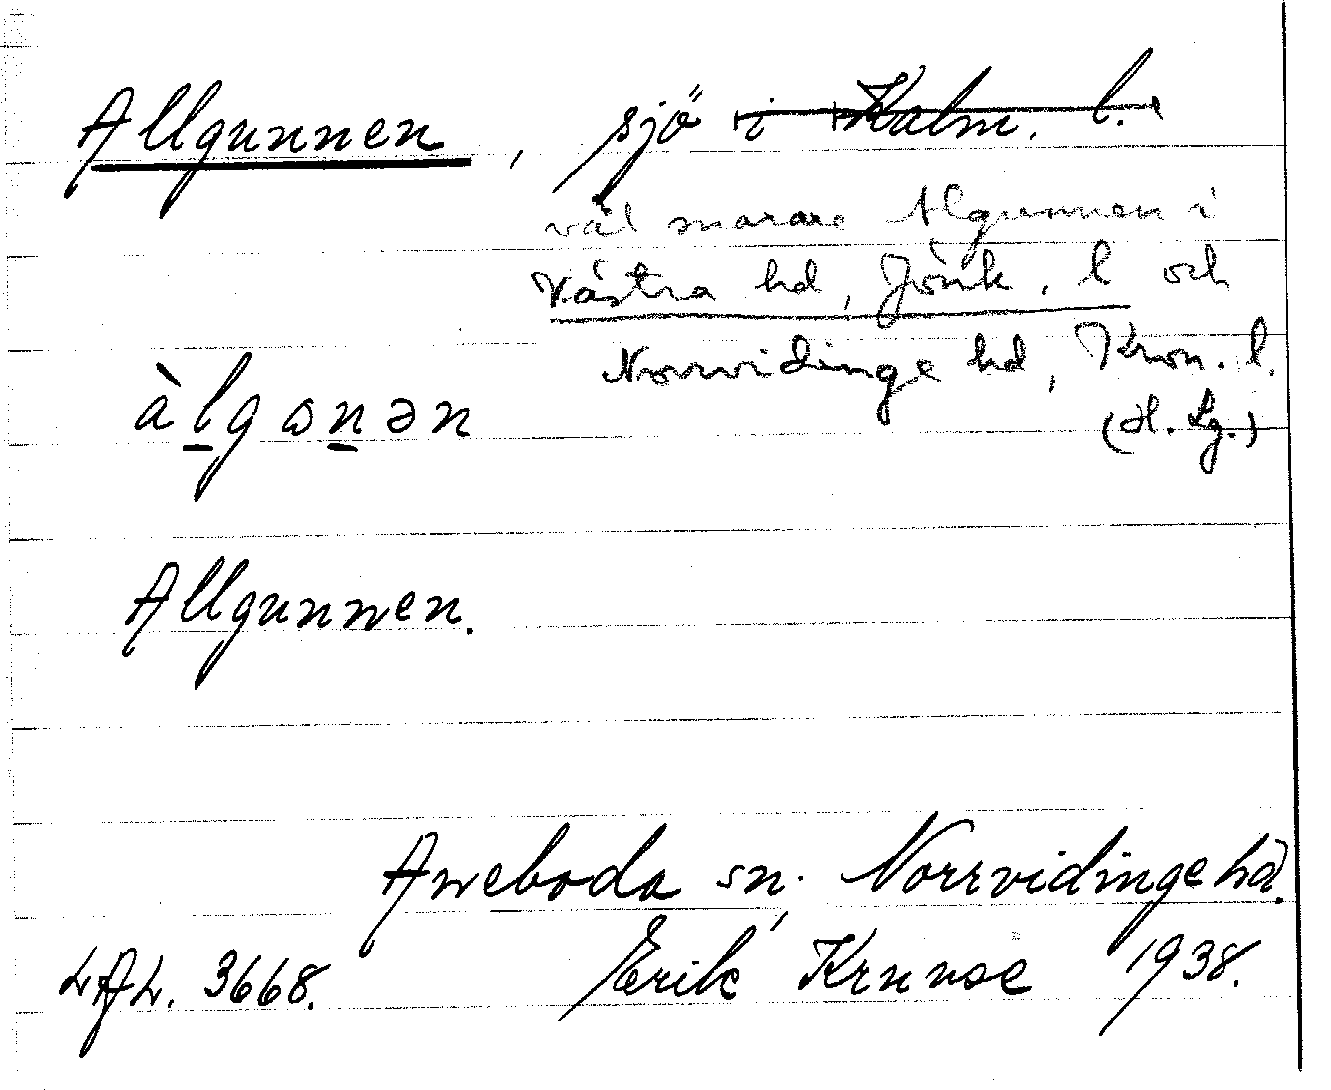 Allgunnen, sjö i Kalm. l.
väl snarare Algunnen i
Västra hd, Jönk. l och
Norrvidinge hd, Kron. l.
(H. Lg.)
àlgɷnən
Allgunnen.
Aneboda sn. Norrvidinge hd.
LAL. 3668. Erik Kruuse 1938.